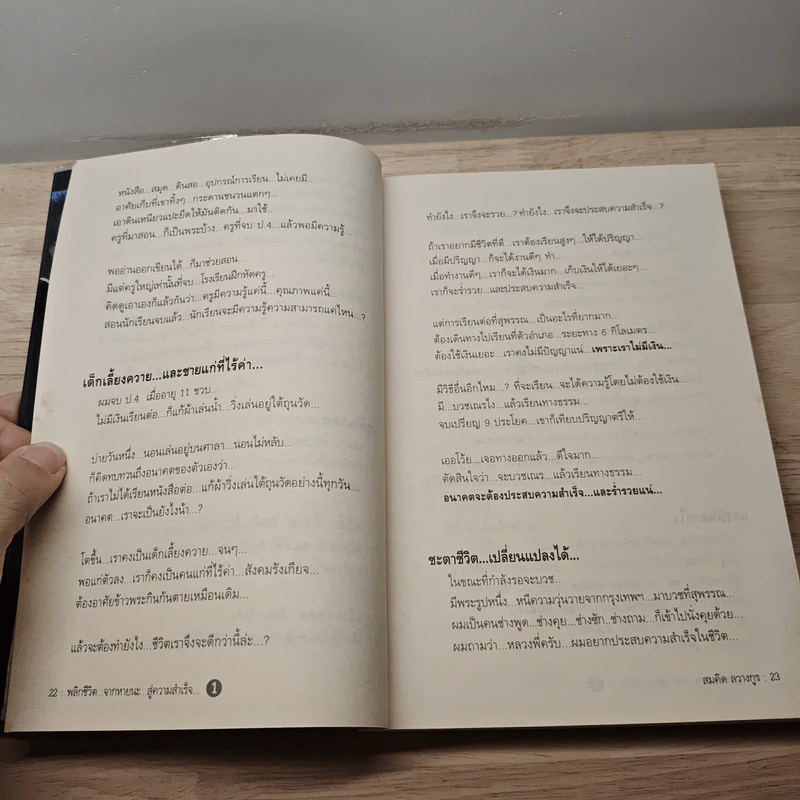 หนังสือ...สมุด...ดินสอ...อุปกรณ์การเรียน...ไม่เคยมี...
อาศัยเก็บที่เขาทิ้งๆ...กระดานชนวนแตกๆ...
เอาดินเหนียวแปะยึดให้มันติดกัน...มาใช้...
ครูที่มาสอน...ก็เป็นพระบ้าง...ครูที่จบ ป.4...แล้วพอมีความรู้...
พออ่านออกเขียนได้...ก็มาช่วยสอน...
มีแต่ครูใหญ่เท่านั้นที่จบ...โรงเรียนฝึกหัดครู...
คิดดูเอาเองก็แล้วกันว่า...ครูมีความรู้แค่นี้...คุณภาพแค่นี้...
สอนนักเรียนจบแล้ว...นักเรียนจะมีความรู้ความสามารถแค่ไหน...?
เด็กเลี้ยงควาย...และชายแก่ที่ไร้ค่า...
ผมจบ ป.4 เมื่ออายุ 11 ขวบ...
ไม่มีเงินเรียนต่อ...ก็แก้ผ้าเล่นน้ำ...วิ่งเล่นอยู่ใต้ถุนวัด...
บ่ายวันหนึ่ง...นอนเล่นอยู่บนศาลา...นอนไม่หลับ...
ก็คิดทบทวนถึงอนาคตของตัวเองว่า...
ถ้าเราไม่ได้เรียนหนังสือต่อ...แก้ผ้าวิ่งเล่นใต้ถุนวัดอย่างนี้ทุกวัน...
อนาคต...เราจะเป็นยังไงน้า...?
โตขึ้น...เราคงเป็นเด็กเลี้ยงควาย...จนๆ...
พอแก่ตัวลง...เราก็คงเป็นคนแก่ที่ไร้ค่า...สังคมรังเกียจ...
ต้องอาศัยข้าวพระกินกันตายเหมือนเดิม...
แล้วจะต้องทำยังไง...ชีวิตเราจึงจะดีกว่านี้ล่ะ...?
22 : พลิกชีวิต...จากหายนะ...สู่ความสำเร็จ... 1
ทำยังไง...เราจึงจะรวย...? ทำยังไง...เราจึงจะประสบความสำเร็จ...?
ถ้าเราอยากมีชีวิตที่ดี...เราต้องเรียนสูงๆ...ให้ได้ปริญญา...
เมื่อมีปริญญา...ก็จะได้งานดีๆ ทำ...
เมื่อทำงานดีๆ...เราก็จะได้เงินมาก...เก็บเงินให้ได้เยอะๆ...
เราก็จะร่ำรวย...และประสบความสำเร็จ...
แต่การเรียนต่อที่สุพรรณ...เป็นอะไรที่ยากมาก...
ต้องเดินทางไปเรียนที่ตัวอำเภอ...ระยะทาง 6 กิโลเมตร...
ต้องใช้เงินเยอะ...เราคงไม่มีปัญญาแน่...เพราะเราไม่มีเงิน...
มีวิธีอื่นอีกไหม...? ที่จะเรียน...จะได้ความรู้โดยไม่ต้องใช้เงิน...
มี...บวชเณรไง...แล้วเรียนทางธรรม...
จบเปรียญ 9 ประโยค...เขาก็เทียบปริญญาตรีให้...
เออโว้ย...เจอทางออกแล้ว...ดีใจมาก...
ตัดสินใจว่า...จะบวชเณร...แล้วเรียนทางธรรม...
อนาคตจะต้องประสบความสำเร็จ...และร่ำรวยแน่...
ชะตาชีวิต...เปลี่ยนแปลงได้...
ในขณะที่กำลังรอจะบวช...
มีพระรูปหนึ่ง...หนีความวุ่นวายจากกรุงเทพฯ...มาบวชที่สุพรรณ...
ผมเป็นคนช่างพูด...ช่างคุย...ช่างซัก...ช่างถาม...ก็เข้าไปนั่งคุยด้วย...
ผมถามว่า...หลวงพี่ครับ...ผมอยากประสบความสำเร็จในชีวิต...
สมคิด ลวางกูร : 23